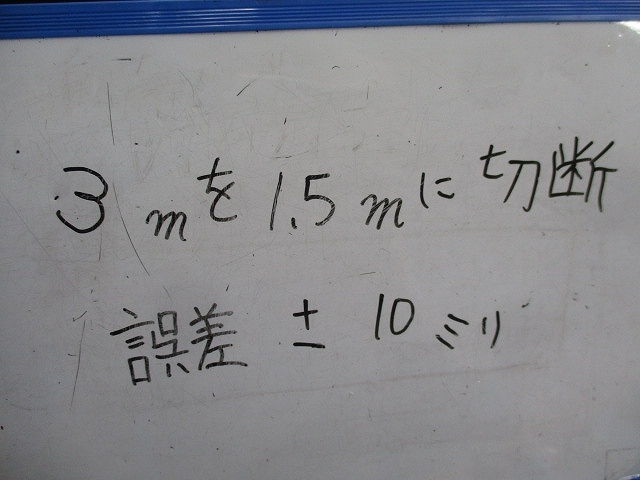 3mを1.5mに切断
誤差 ± 10 ミリ